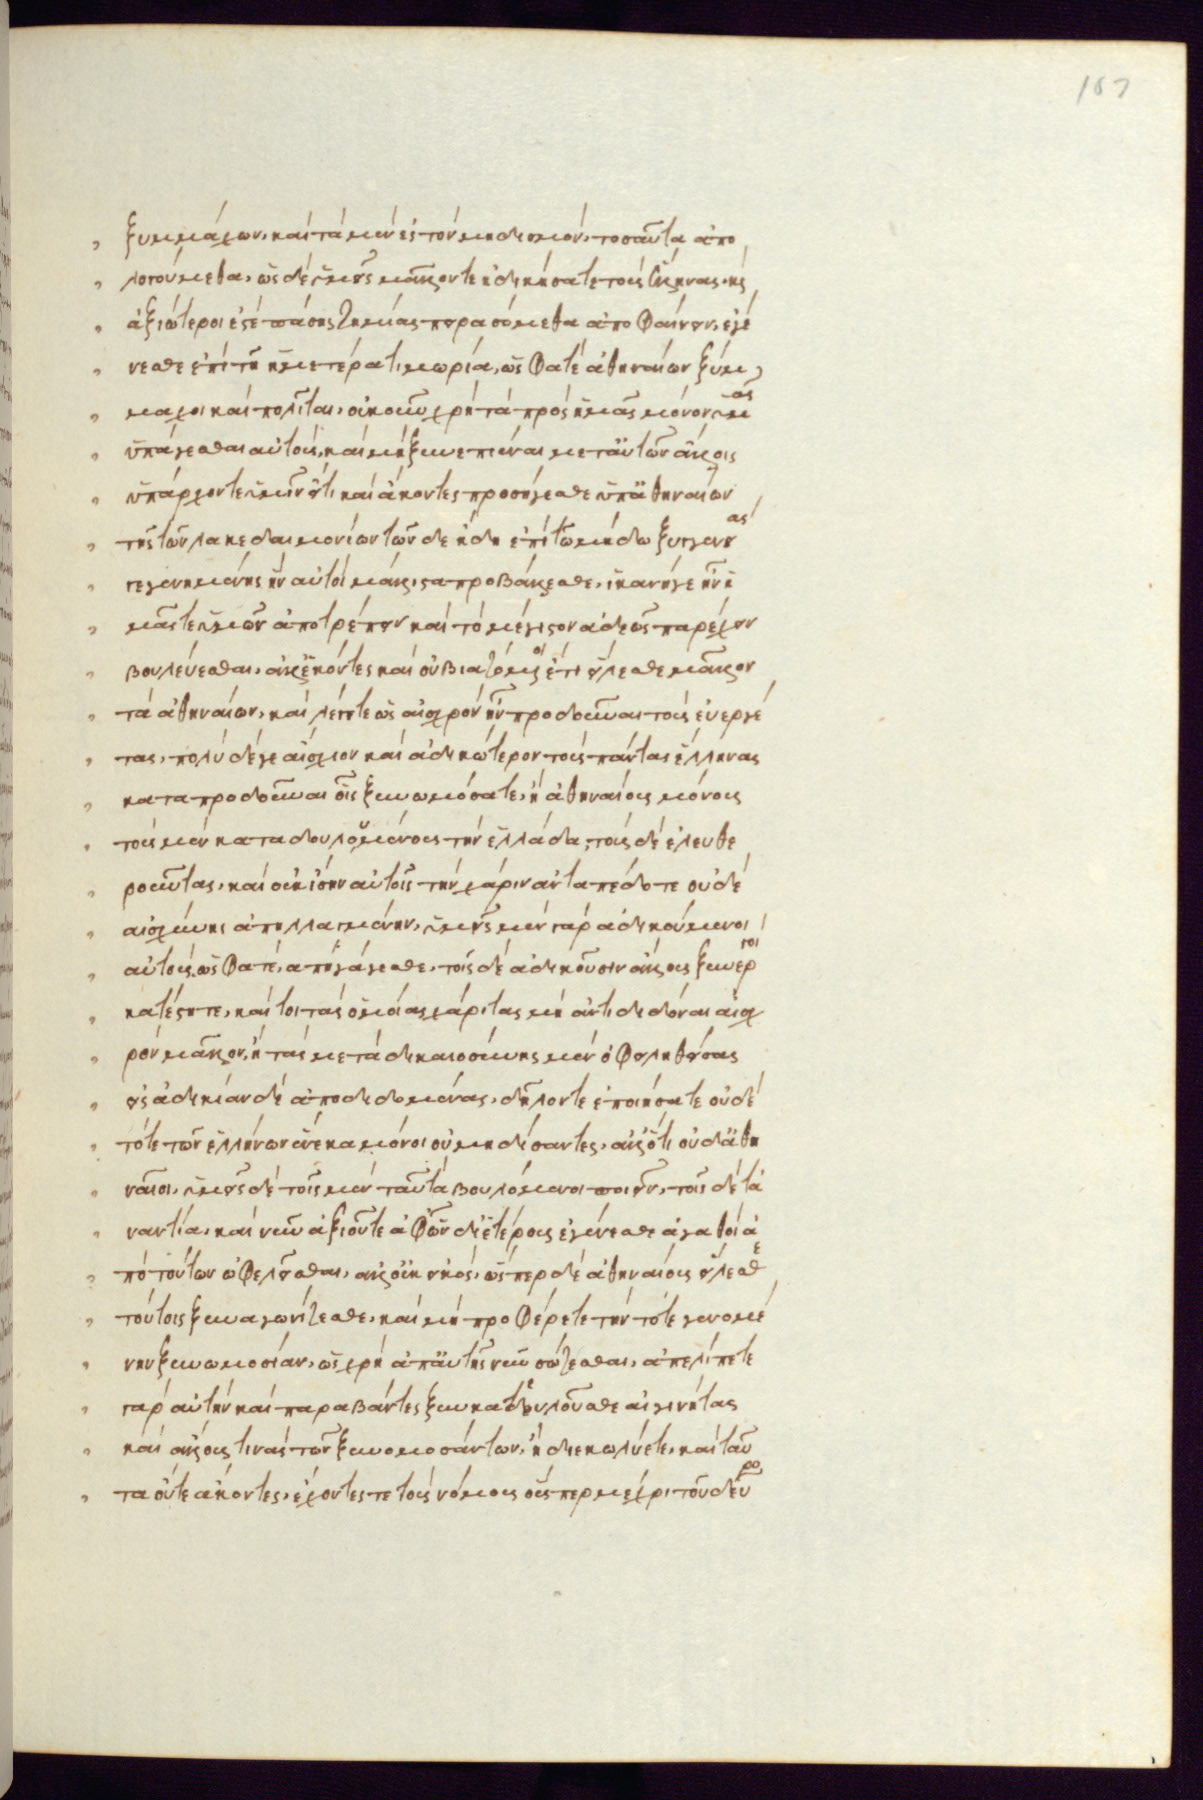 167
ξυμμάχων, καὶ τὰ μὲν ἐς τὸν μηδισμὸν, τοσαῦτα ἀπο
λογούμεθα, ὡς δὲ ὑμεῖς μᾶλλόν τε ἠδικήσατε τοὺς ἕλληνας, καὶ
ἀξιώτεροί ἐστε πάσης ζημίας πειρασόμεθα ἀποφαίνειν, ἐγέ
νεσθε ἐπὶ τῇ ἡμετέρα τιμωρία, ὡς φατὲ ἀθηναίων ξύμ
μαχοι καὶ πολῖται, οὐκοῦν χρῆ τὰ πρὸς ἡμᾶς μόνον ὑμᾶς
ὑπάγεσθαι αὐτοὺς, καὶ μὴ ξυνεπιέναι μετ' αὐτῶν ἄλλοις
ὑπάρχον τε ὑμῖν εἴ τι καὶ ἄκοντες προσήγεσθε ὑπ' ἀθηναίων
τῆς τῶν λακεδαιμονίων τῶνδε ἤδη ἐπὶ τῷ μήδω ξυμμαχίας
γεγενημένης ἣν αὐτοὶ μάλιστα προβάλλεσθε, ἱκανή γε ἦν ἡ
μᾶς τε ὑμῶν ἀποτρέπειν καὶ τὸ μέγιστον ἀδεῶς παρέχειν
βουλεύεσθαι, ἀλλ' ἑκόντες καὶ οὐ βιαζόμενοι ἔτι εἵλεσθε μᾶλλον
τὰ ἀθηναίων, καὶ λέγετε ὡς αἰσχρὸν ἦν προδοῦναι τοὺς εὐεργέ
τας, πολὺ δέ γε αἴσχιον καὶ ἀδικώτερον τοὺς πάντας ἕλληνας
καταπροδοῦναι οἷς ξυνωμόσατε, ἢ ἀθηναίους μόνους
τοὺς μὲν καταδουλουμένους τὴν ἑλλάδα, τοὺς δὲ ἐλευθε
ροῦντας, καὶ οὐκ ἴσην αὐτοῖς τὴν χάριν ἀνταπέδοτε οὐδὲ
αἰσχύνης ἀπηλλαγμένην, ὑμεῖς μὲν γὰρ ἀδικούμενοι
αὐτοὺς, ὡς φατὲ, ἐπηγάγεσθε, τοῖς δὲ ἀδικοῦσιν ἄλλους ξυνεργοὶ
κατέστητε, καίτοι τὰς ὁμοίας χάριτας μὴ ἀντιδιδόναι αἰσχ
ρὸν μᾶλλον, ἢ τὰς μετὰ δικαιοσύνης μὲν ὀφειληθείσας
εἰς ἀδικίαν δὲ ἀποδιδομένας, δῆλόν τε ἐποιήσατε οὐδὲ
τότε τῶν ἑλλήνων ἕνεκα μόνοι οὐ μηδίσαντες, ἀλλ' ὅτι οὐδ' ἀθη
ναῖοι, ὑμεῖς δὲ τοῖς μὲν ταῦτὰ βουλόμενοι ποιεῖν, τοῖς δὲ τἀ
ναντία, καὶ νῦν ἀξιοῦτε ἀφ' ὧν δι' ἑτέρους ἐγένεσθε ἀγαθοὶ ἀ
πὸ τούτων ὠφελεῖσθαι, ἀλλ' οὐκ εἰκὸς, ὥσπερ δὲ ἀθηναίους εἵλεσθε
τούτοις ξυναγωνίζεσθε, καὶ μὴ προφέρετε τὴν τότε γενομέ
νην ξυνωμοσίαν, ὡς χρὴ ἀπ' αὐτῆς νῦν σώζεσθαι, ἀπελίπετε
γὰρ αὐτὴν καὶ παραβάντες ξυνκατεδουλοῦσθε αἰγινήτας
καὶ ἄλλους τινὰς τῶν ξυνομοσάντων, ἢ διεκωλύετε, καὶ ταῦ
τα οὔτε ἄκοντες, ἔχοντές τε τοὺς νόμους οὕσπερ μέχρι τοῦ δεῦρο